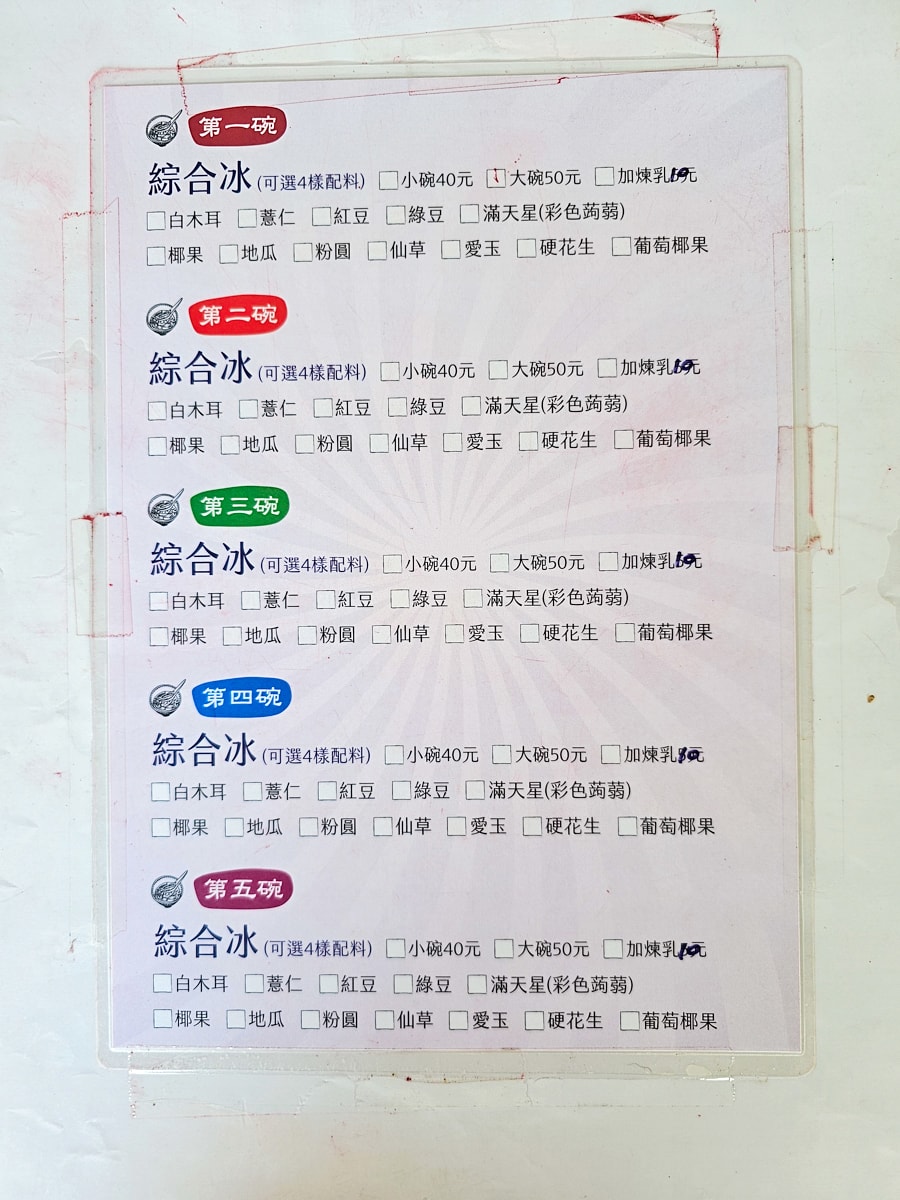 第一碗
綜合冰(可選4樣配料) □小碗40元 □大碗50元 □加煉乳10元
□白木耳 □薏仁 □紅豆 □綠豆 □滿天星(彩色蒟蒻)
□椰果 □地瓜 □粉圓 □仙草 □愛玉 □硬花生 □葡萄椰果
第二碗
綜合冰(可選4樣配料) □小碗40元 □大碗50元 □加煉乳10元
□白木耳 □薏仁 □紅豆 □綠豆 □滿天星(彩色蒟蒻)
□椰果 □地瓜 □粉圓 □仙草 □愛玉 □硬花生 □葡萄椰果
第三碗
綜合冰(可選4樣配料) □小碗40元 □大碗50元 □加煉乳10元
□白木耳 □薏仁 □紅豆 □綠豆 □滿天星(彩色蒟蒻)
□椰果 □地瓜 □粉圓 □仙草 □愛玉 □硬花生 □葡萄椰果
第四碗
綜合冰(可選4樣配料) □小碗40元 □大碗50元 □加煉乳10元
□白木耳 □薏仁 □紅豆 □綠豆 □滿天星(彩色蒟蒻)
□椰果 □地瓜 □粉圓 □仙草 □愛玉 □硬花生 □葡萄椰果
第五碗
綜合冰(可選4樣配料) □小碗40元 □大碗50元 □加煉乳10元
□白木耳 □薏仁 □紅豆 □綠豆 □滿天星(彩色蒟蒻)
□椰果 □地瓜 □粉圓 □仙草 □愛玉 □硬花生 □葡萄椰果